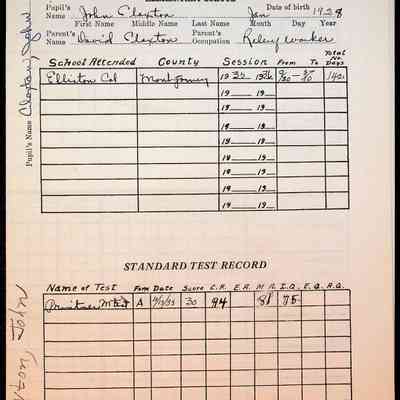 Pupil's Name John Claxton Jan 1928 Date of birth
First Name Middle Name Last Name Month Day Year
Parent's Name David Claxton Parent's Occupation Relief Worker
Pupil's Name Claxton, John
School Attended County Session From To Total No. Days
Elliston Col Montgomery 19 35 19 36
19 19
19 19
19 19
19 19
19 19
19 19
19 19
STANDARD TEST RECORD
Name of Test Form Date Score C.A. E.A. M.A. I.Q. E.Q. A.Q.
A 30 94 81 75
John